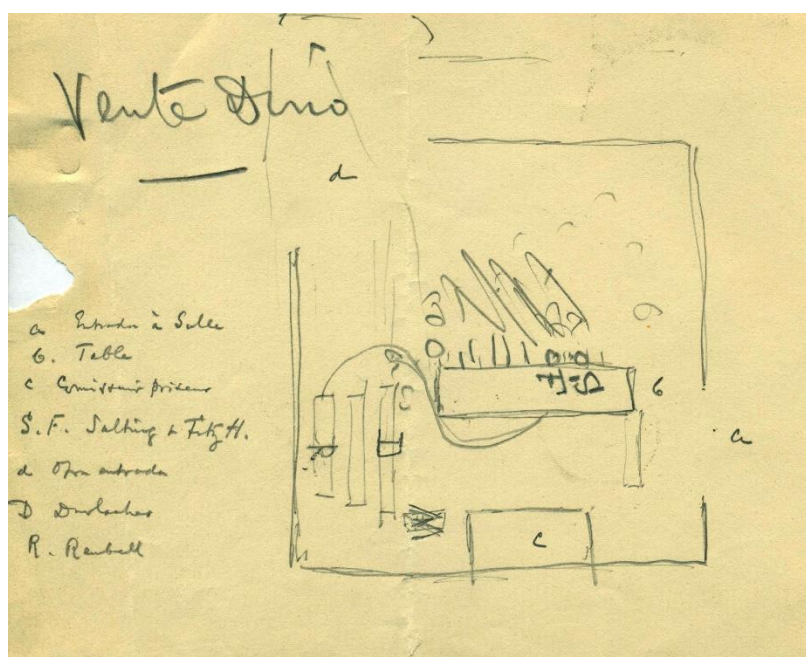 Vente Dino
d
a Entrada à Salle
b. Table
c Comissair priseur
S.F. Salting & Fitz H.
d Otra entrada
D Durlacher
R.
F S
b
a
R
D
c